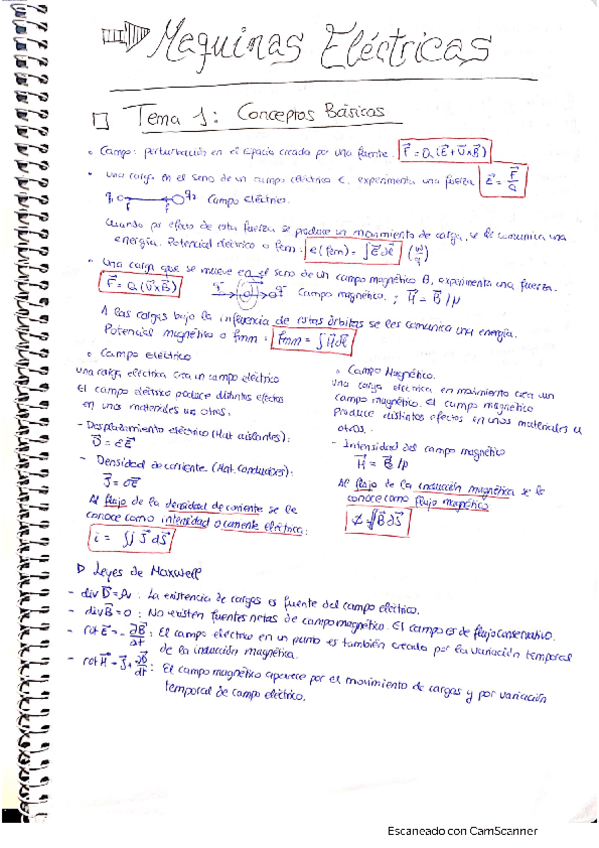 Maquinas Eléctricas
Tema 1: Conceptos Básicos
Campo: perturbación en el espacio creada por una fuente. F⃗ = Q(E⃗ + U⃗xB⃗)
una carga en el seno de un campo eléctrico E, experimenta una fuerza E⃗ = F⃗/Q
q₁ q₂ Campo eléctrico.
F F
Cuando por efecto de esta fuerza se produce un movimiento de carga, se le comunica una
energía. Potencial eléctrico o fem: e(fem) = ∫E⃗dl⃗ (W/q)
Una carga que se mueve en el seno de un campo magnético B, experimenta una fuerza.
F⃗ = Q(U⃗xB⃗) Campo magnético. ; H⃗ = B⃗/μ
A las cargas bajo la influencia de estas órbitas se les comunica una energía.
Potencial magnético o fmm: fmm = ∫H⃗dl⃗
Campo eléctrico
una carga eléctrica crea un campo eléctrico
El campo eléctrico produce distintos efectos
en unos materiales u otros.
- Desplazamiento eléctrico (Mat. aislantes):
D⃗ = εE⃗
- Densidad de corriente (Mat. Conductores):
J⃗ = σE⃗
Al flujo de la densidad de corriente se le
conoce como intensidad o corriente eléctrica:
i = ∬ J⃗ dS⃗
Campo Magnético.
Una carga eléctrica en movimiento crea un
campo magnético. El campo magnético
produce distintos efectos en unos materiales u
otros.
- Intensidad del campo magnético
H⃗ = B⃗/μ
Al flujo de la inducción magnética se le
conoce como flujo magnético
∬B⃗ dS⃗
▷ Leyes de Maxwell
- div D⃗ = ρ : La existencia de cargas es fuente del campo eléctrico.
- div B⃗ = 0 : No existen fuentes netas de campo magnético. El campo es de flujo conservativo.
- rot E⃗ = - ∂B⃗/∂t : El campo eléctrico en un punto es también creado por la variación temporal
de la inducción magnética.
- rot H⃗ = J⃗ + ∂D⃗/∂t : El campo magnético aparece por el movimiento de cargas y por variación
temporal de campo eléctrico.
Escaneado con CamScanner